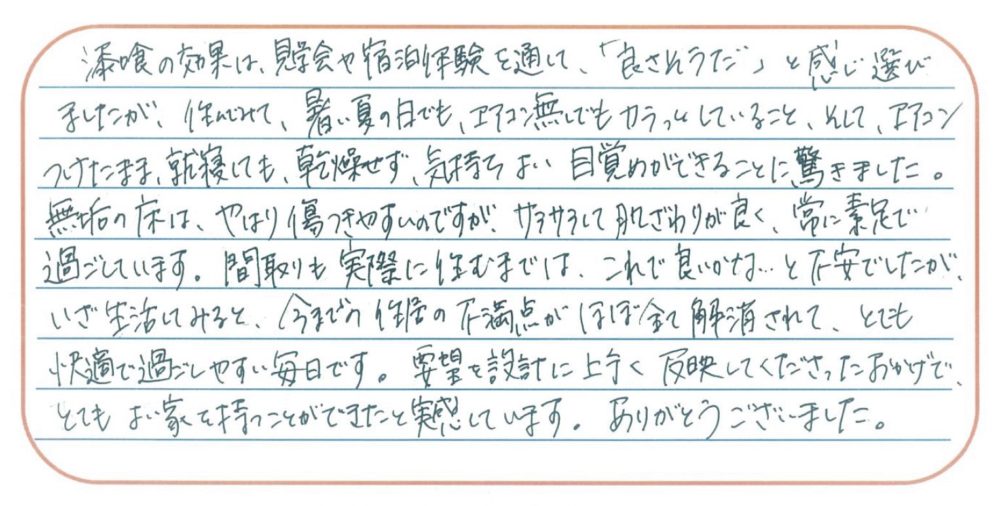 漆喰の効果は、見学会や宿泊体験を通して、「良さそうだ」と感じ選び
ましたが、住んでみて、暑い夏の日でも、エアコン無しでもカラっとしていること、そして、エアコン
つけたまま、就寝しても、乾燥せず、気持ちよい目覚めができることに驚きました。
無垢の床は、やはり傷つきやすいのですが、サラサラして肌ざわりが良く、常に素足で
過ごしています。間取りも実際に住むまでは、これで良いかな…と不安でしたが、
いざ生活してみると、今までの住居の不満点がほぼ全て解消されて、とても
快適で過ごしやすい毎日です。要望を設計に上手く反映してくださったおかげで、
とてもよい家を持つことができたと実感しています。ありがとうございました。